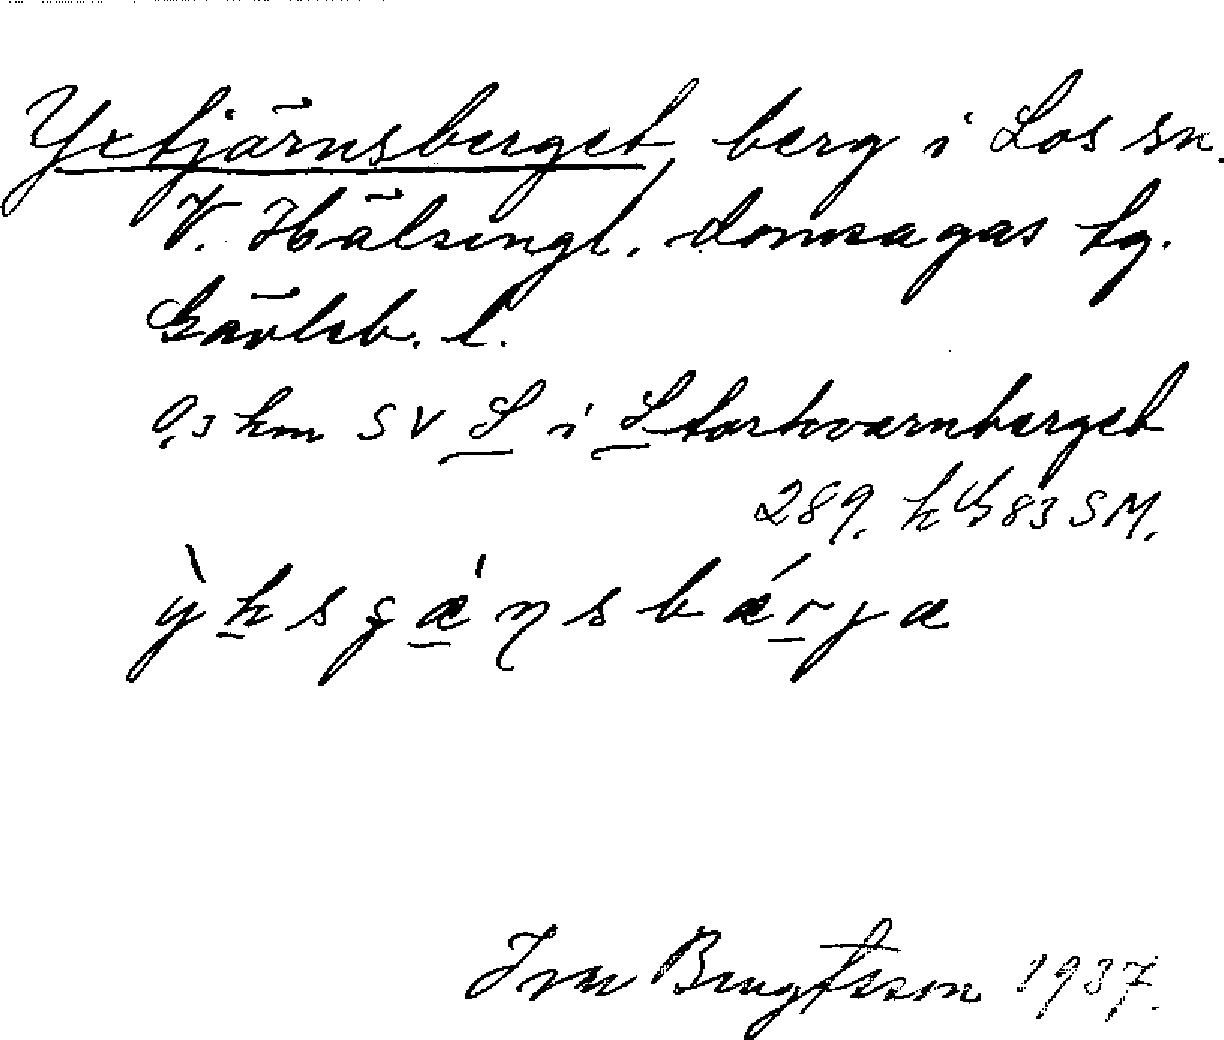 Yxtjärnsberget, berg i Los sn.
V. Hälsingl. domsagas tg.
Gävleb. l.
0,3 km SV S i Storkvarnberget
289. k 83 SM.
bærja
Bengtsson 1937.